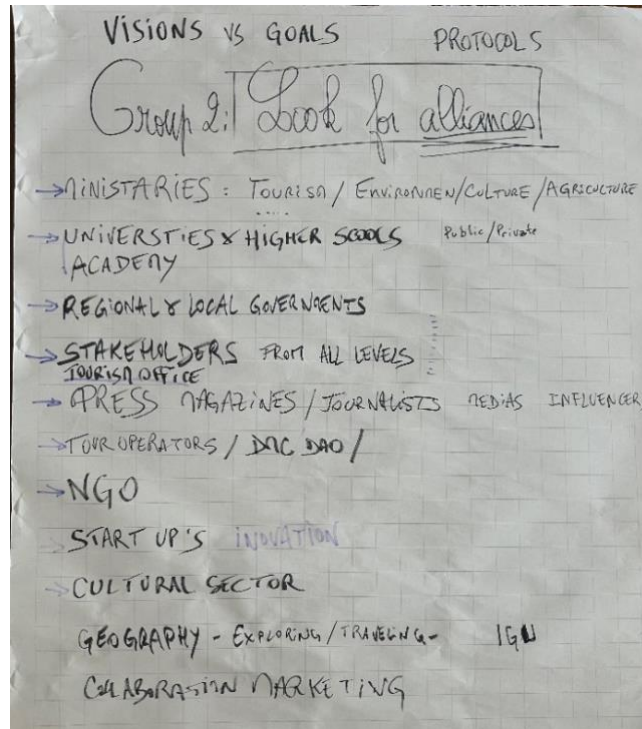 VISIONS VS GOALS PROTOCOLS
Group 2: Look for alliances
→ MINISTARIES : TOURISM / ENVIRONMEN/CULTURE /AGRICULTURE
→ UNIVERSTIES & HIGHER SCOOLS Public/Private
ACADEMY
→ REGIONAL & LOCAL GOVERNMENTS
→ STAKEHOLDERS FROM ALL LEVELS
TOURISM OFFICE
→ PRESS MAGAZINES / JOURNALISTS MEDIAS INFLUENCER
→ TOUR OPERATORS / DMC DAO /
→ NGO
START UP'S INOVATION
→ CULTURAL SECTOR
GEOGRAPHY - EXPLORING / TRAVELING -
COLLABORASION MARKETING